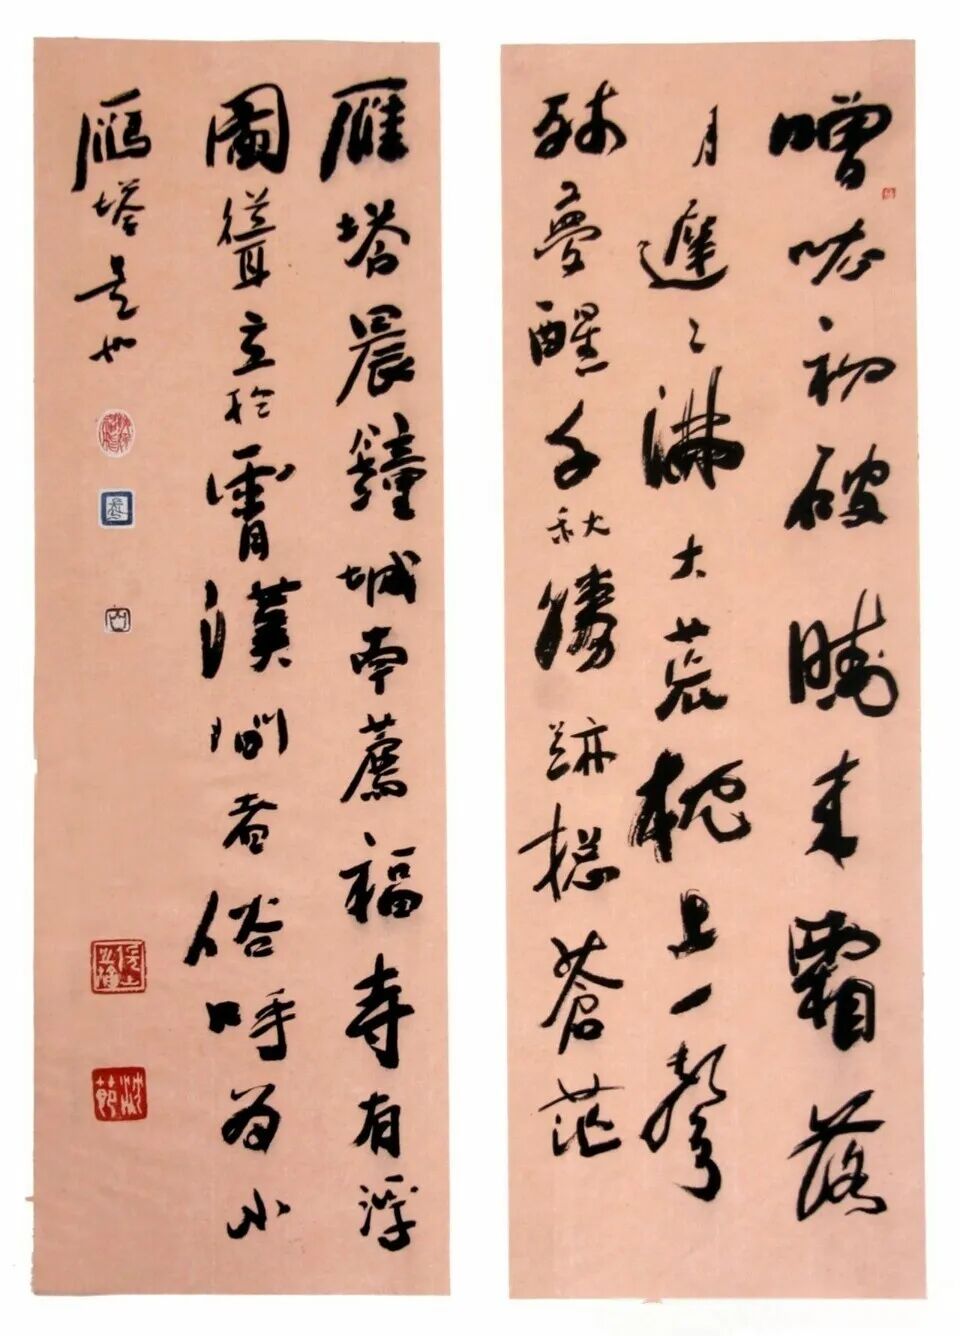 噌吰初破曉来霜落
月遲〻满大荒枕上一聲
残夢醒千秋勝跡揔蒼茫
雁塔晨鐘城南薦福寺有浮
圖聳立於霄漢間者俗呼为小
鴈塔是也